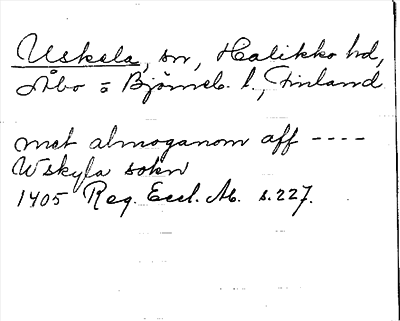 Uskela, sn, Halikko hd,
Åbo = Björneb. l., Finland
met almoganom aff ----
Wskyla sokn
1405 Reg. Eccl. Ab. s. 227.